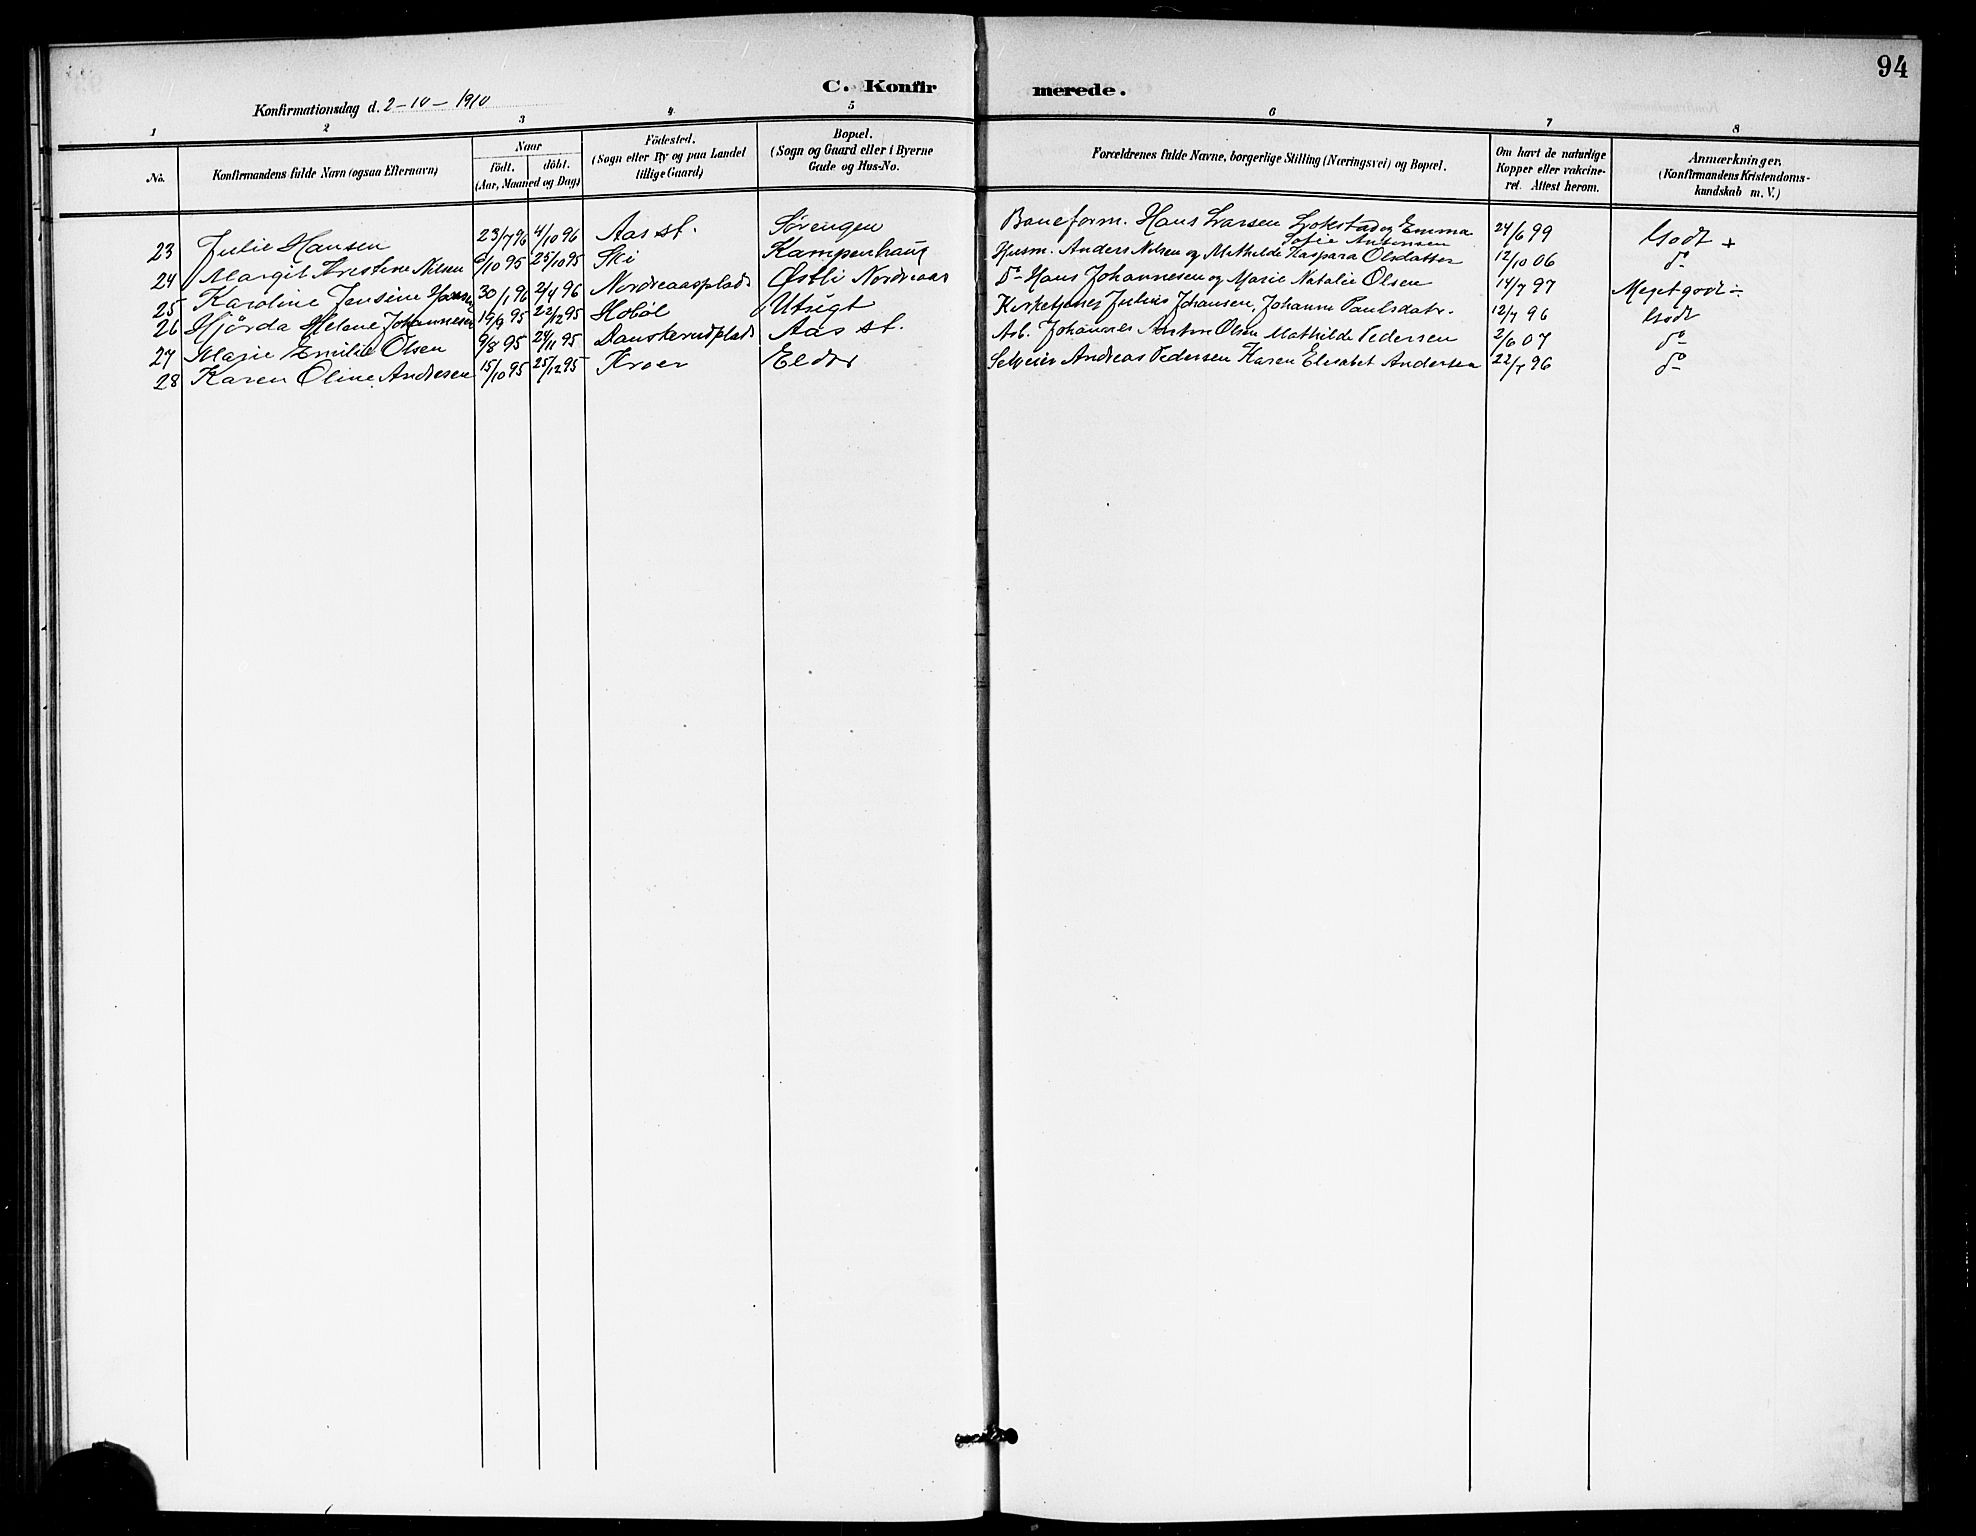 94
C. Konfirmerede.
Konfirmationsdag d. 2-10-1910
1 2 3 4 5 6 7 8
No. Konfirmandens fulde Navn (ogsaa Efternavn) Naar födt. döbt. (Aar, Maaned og Dag) Födested. (Sogn eller By og paa Landet tillige Gaard) Bopæl. (Sogn og Gaard eller i Byerne Gade og Hus-No. Forældrenes fulde Navne, borgerlige Stilling (Næringsvei) og Bopæl. Om havt de naturlige Kopper eller vakcineret. Attest herom. Anmærkninger. (Konfirmandens Kristendomskundskab m. V.)
23 Julie Hansen 23/7 96 4/10 96 Aas st. Sörengen Baneform. Hans Larsen Ljokstad og Emma Sofie Antonsen 24/6 99 Godt +
24 Margit Kristine Nilsen /10 95 25/10 95 Ski Kampenhaug Husm. Anders Nilsen og Mathilde Kaspara Olsdatter 12/10 06 do
25 Karoline Jensine Hansen 30/1 96 2/4 96 Nordreaasplads Østli Nordreaas Do Hans Johannesen og Marie Natalie Olsen 14/7 97 Meget godt ÷
26 Hjörda Helene Johannesen 19/9 95 22/12 95 Hobøl Utsigt Kirketjener Julius Johansen, Johanne Paulsdatr. 12/7 96 Godt
27 Marie Emilie Olsen 9/8 95 24/11 95 Danskerudplads Aas st. Arb. Johannes Anton Olsen Mathilde Pedersen 2/6 07 do
28 Karen Oline Andresen 15/10 95 25/12 95 Kroer Eldor Selveier Andreas Pedersen Karen Elisabet Andersen 22/7 96 do